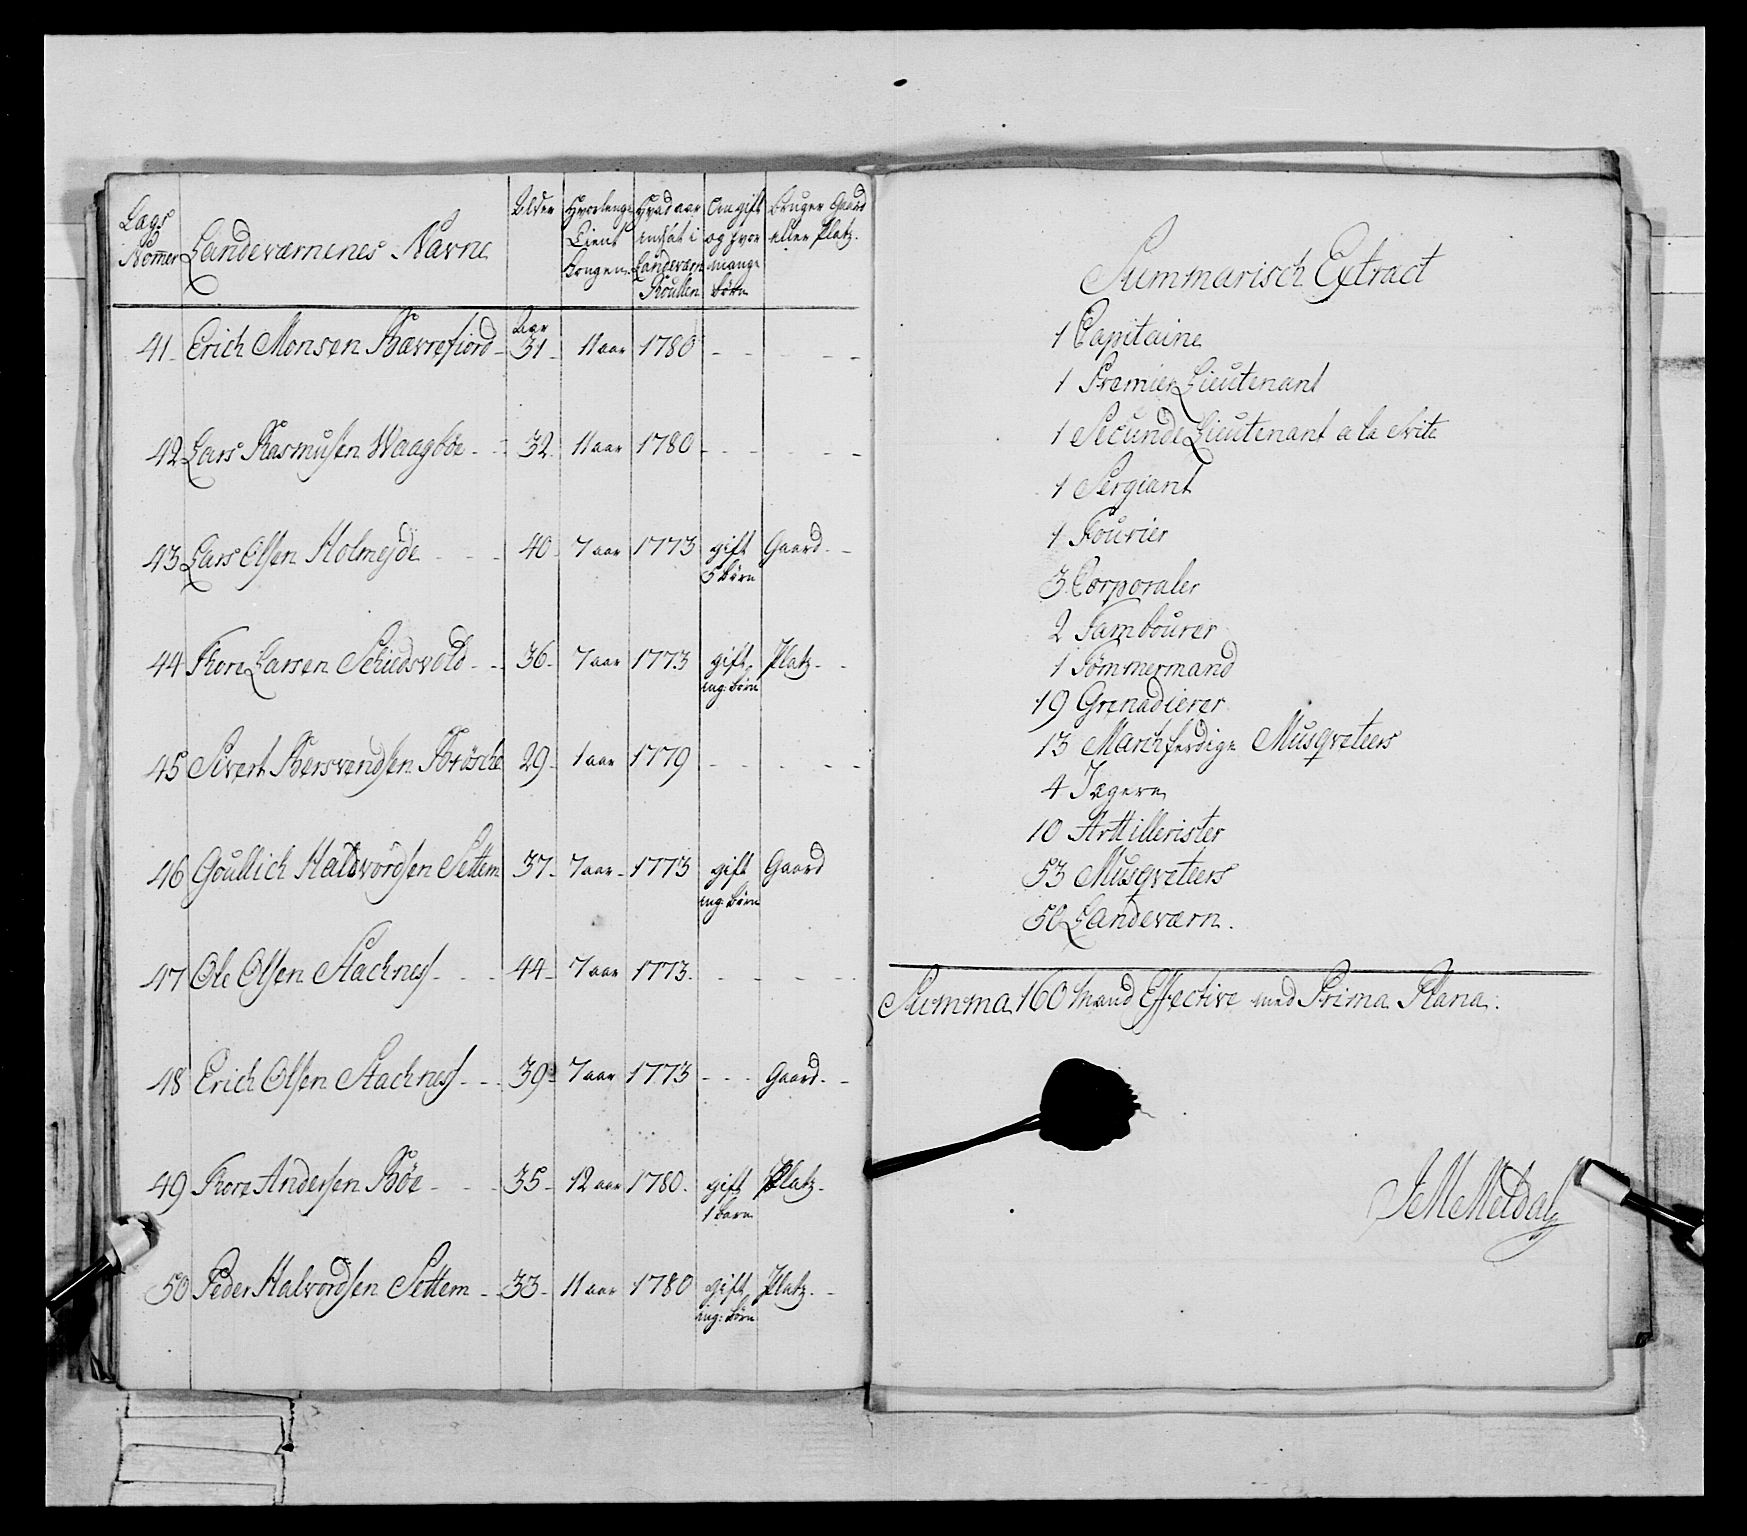 Lægs Nomer | Landeværnenes Navne | Alder | Hvorlenge Tient Kongen | Hvad aar ansat i Landeværn Roullen | Om gift og hvor mange børn | Bruger Gaard eller Platz.
Aar
41 Erich Monsen Bævrefiord - 31 - 11 aar 1780 - - - - -
42 Lars Rasmusen Waagbøe - - 32 11 aar 1780 - - - - -
43 Lars Olsen Holmeyde - - - 40 - 7 aar 1773 gift Gaard - -
5 børn
44 Thore Larsen Schiedsvold - - 36 - 7 aar 1773 gift Platz - -
ing: børn
45 Sivert Bersvendsen Brøsche 29 - 1 aar 1779 - - - - -
46 Goullich Halvordsen Settem 37 - 7 aar - 1773 gift Gaard
ing: børn
47 Ole Olsen Stachnes - - - 44 - 7 aar 1773. - - - - -
48 Erich Olsen Stachnes - - - 39 - 7 aar 1773 - - - Gaard - -
49 Thore Andersen Bøe - - - 35 - 12 aar 1780. gift Platz -
1 barn
50 Peder Halvordsen Settem - - 33 - 11 aar 1780 gift Platz. -
ing: børn
Summarisch Extract
1 Capitaine
1 Premier Lieutenant
1 Secunde Lieutenant a la Svite
1 Sergiant
1 Fourier
3 Corporaler
2 Tambourer
1 Tømmermand
19 Grenadierer
13 Marchferdige Musqveteers
4 Jægere
10 Artillerister
53 Musqveteers
50 Landeværn.
Summa 160 Mand Effective med Prima Plana.
J M Meldal